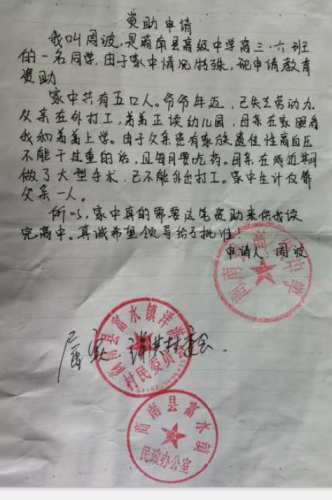 资助申请
我叫周波，是商南县高级中学高三·六班
的一名同学，由于家中情况特殊，现申请教育
资助
家中共有五口人。爷爷年迈，已失去劳动力
父亲在外打工，弟弟正读幼儿园，母亲在家照看
我和弟弟上学。由于父亲患有家族遗传性高血压
不能干过重的活，且每月要吃药。母亲在两近期间
做了大型手术，已不能外出打工。家中生计仅靠
父亲一人。
所以，家中真的需要这笔资助来供我读
完高中。真诚希望领导给予批准！
申请人：周波
属实
村委会
商南县富水镇洋
村民委员会
商南县富水镇
民政办公室